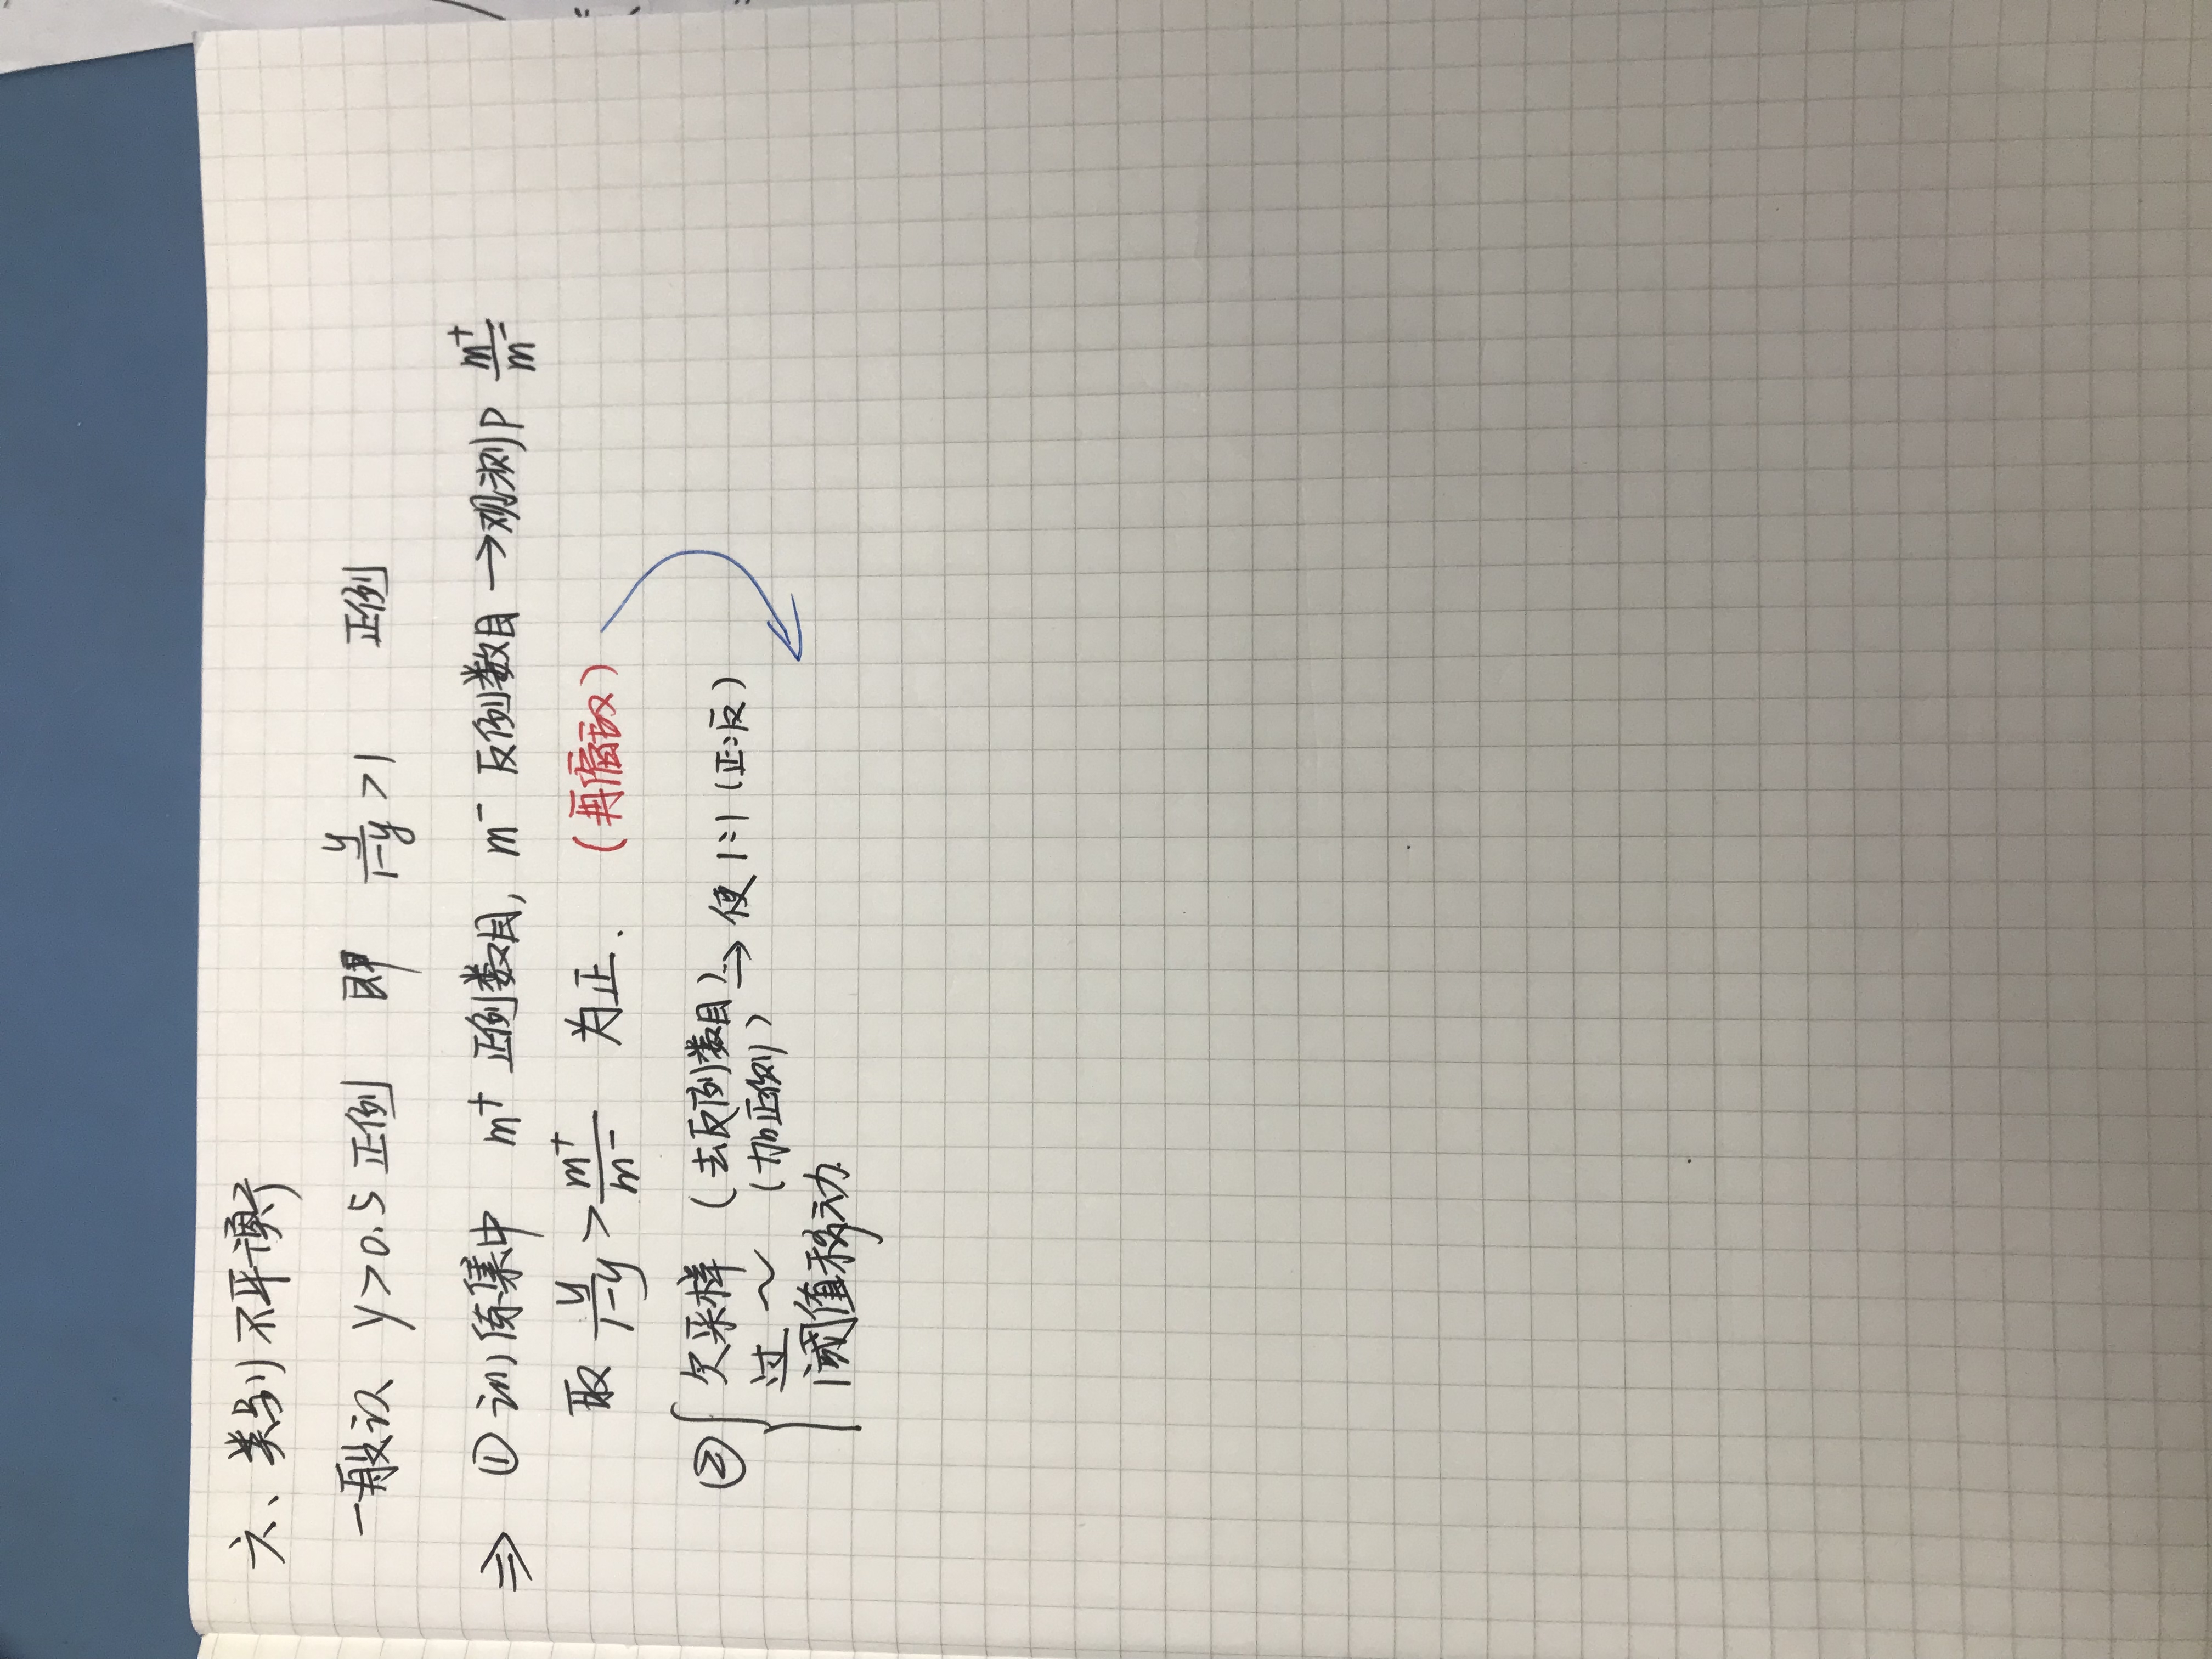 六、类别不平衡
一般认 y>0.5 正例 即 y/(1-y) >1 正例
⇒ ① 训练集中 m⁺ 正例数目, m⁻ 反例数目 → 观测P m⁺/m⁻
取 y/(1-y) > m⁺/m⁻ 为正. (再缩放)
② { 欠采样 (去反例数目) → 使 1:1 (正:反)
过 ~ (加正例)
阈值移动.